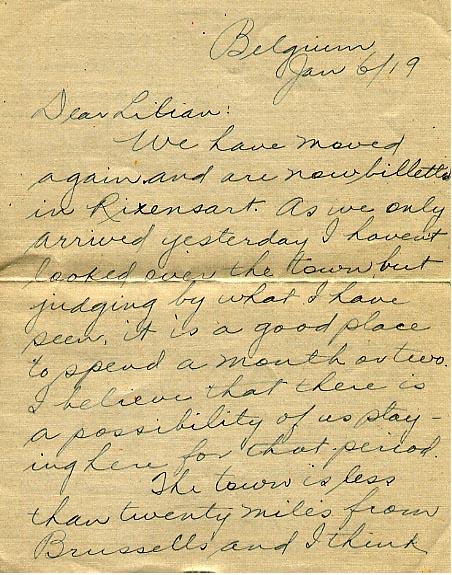 Belgium
Jan 6/19
Dear Lilian:
We have moved
again and are now billetted
in Rixensart. As we only
arrived yesterday I haven't
looked over the town but
judging by what I have
seen, it is a good place
to spend a month or two.
I believe that there is
a possibility of us stay-
ing here for that period.
The town is less
than twenty miles from
Brussells and I think